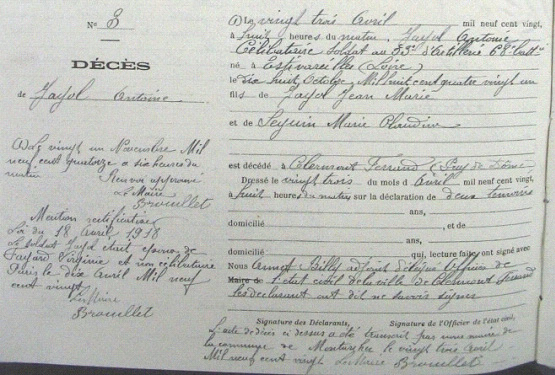 N° 8
DÉCÈS
de Fayol Antoine
Le vingt un Novembre Mil
neuf cent quatorze à six heures du
matin
Renvoi approuvé
Le Maire
Brouillet
Mention rectificative
Loi du 18 avril 1918
Le soldat Fayol était époux de
Fayard Virginie et non célibataire
Paris le dix avril Mil neuf
cent vingt
Le Maire
Brouillet
Le vingt trois Avril mil neuf cent vingt,
à huit heures du matin, Fayol Antoine
Célibataire soldat au 53e d'Artillerie
né à Estivareilles (Loire)
le huit Octobre Mil huit cent quatre vingt un
fils de Fayol Jean Marie
et de Seguin Marie Claudine
est décédé à Clermont Ferrand (Puy de Dôme
Dressé le vingt trois du mois d Avril mil neuf cent vingt,
à huit heures du matin sur la déclaration de deux témoins
ans,
domicilié , et de
ans,
domicilié
qui, lecture faite ont signé avec
Nous Billy adjoint délégué officier de
Maire de l'état civil de la ville de Clermont Ferrand
les déclarant ont dit ne savoir signer
Signature des Déclarants, Signature de l'Officier de l'état civil,
L'acte de décès ci dessus a été transcrit par nous maire de
la commune de le vingt trois avril
Mil neuf cent vingt Le Maire Brouillet